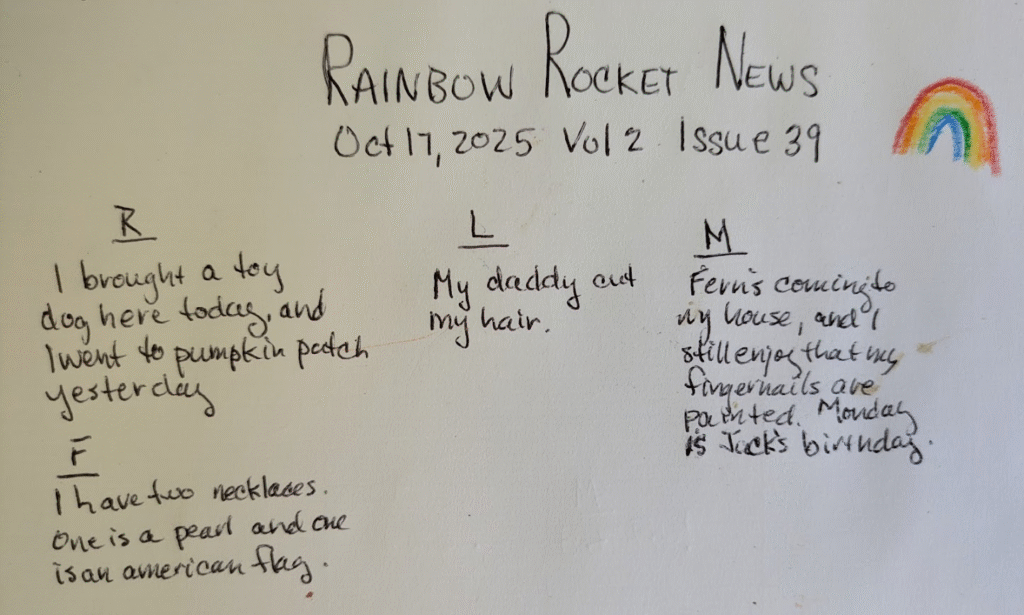 RAINBOW ROCKET NEWS
Oct 17, 2025 Vol 2 Issue 39
R
I brought a toy
dog here today, and
I went to pumpkin patch
yesterday
F
I have two necklaces.
One is a pearl and one
is an american flag.
L
My daddy cut
my hair.
M
Fern's coming to
my house, and I
still enjoy that my
fingernails are
painted. Monday
is Jack's birthday.